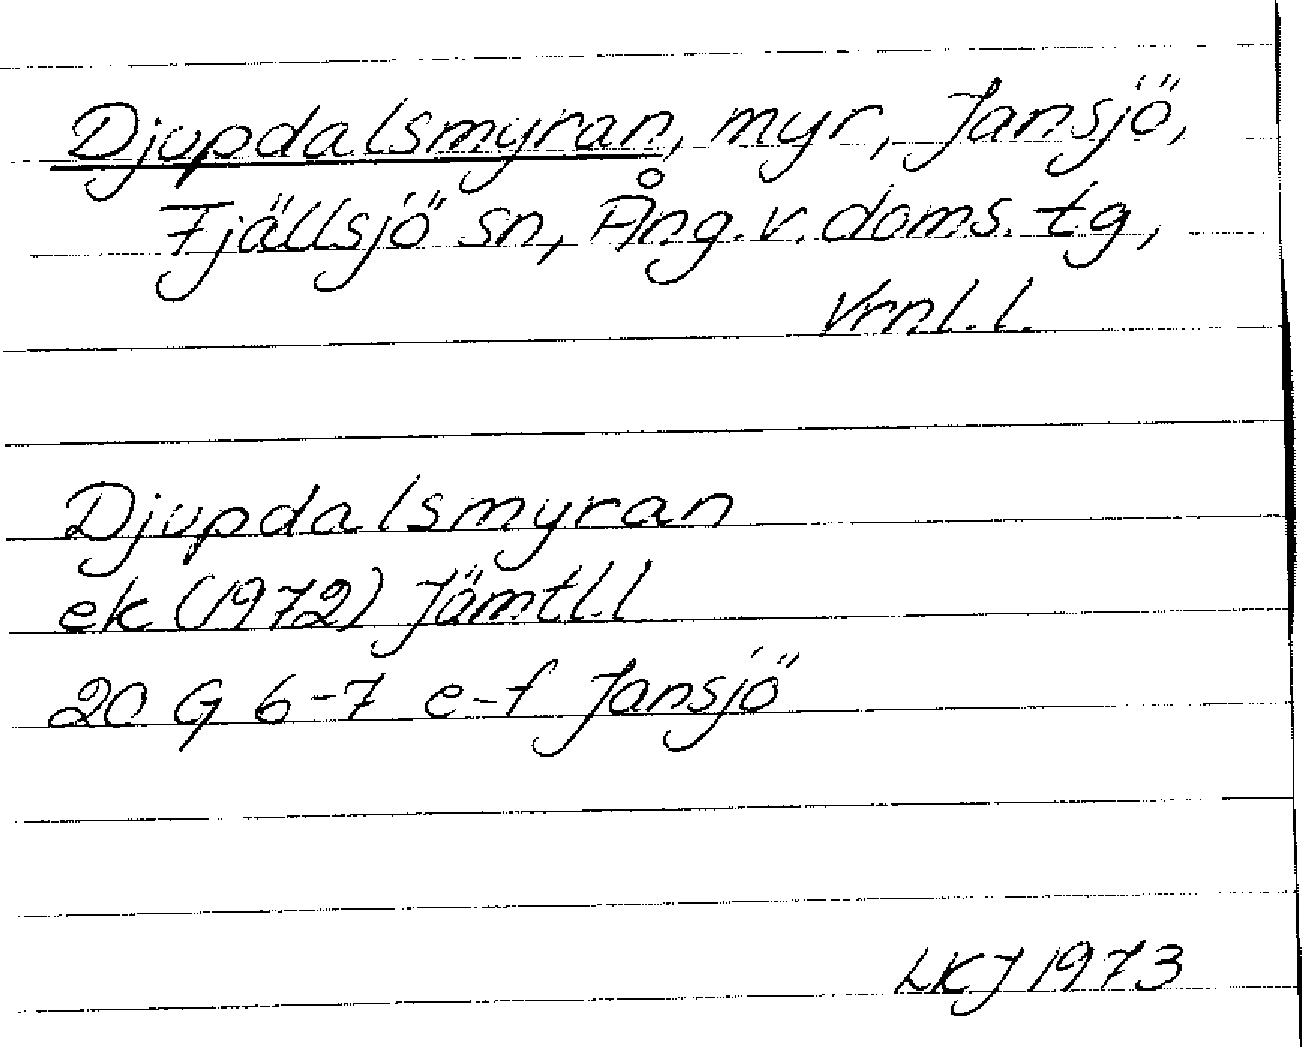 Djupdalsmyran, myr, Jansjö,
Fjällsjö sn, Ång. v. doms. tg,
Vrnl. l.
Djupdalsmyran
ek (1972) Jämtl.l
20 G 6-7 e-f Jansjö
LKJ 1973